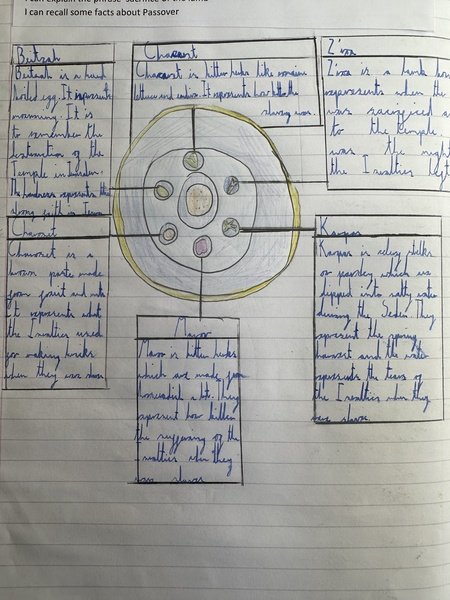 I can explain the phrase 'sacrifice of the lamb'
I can recall some facts about Passover
Beitzah
Beitzah is a hard
boiled egg. It represents
mourning. It is
to remember the
destruction of the
Temple in
The hardness represents the
strong faith in
Chazeret
Chazeret is bitter herbs like romaine
lettuce and endive. It represents how bitter
slavery was.
Z'roa
Z'roa is a lamb bone
represents when the
was sacrificed
to the temple
was the night
the Isralties
Charoset
Charoset is a
brown paste made
from fruit and nuts
It represents what
the Isralties used
for making bricks
when they were slaves
Karpas
Karpas is celery stalks
or parsley which is
dipped into salty water
during the Seder. They
represent the spring
harvest and the water
represents the tears of
the Isralties when they
were slaves.
Maror
Maror is bitter herbs
which are made from
horseradish
represent how bitter
the suffering of the
Isralties when they
were slaves